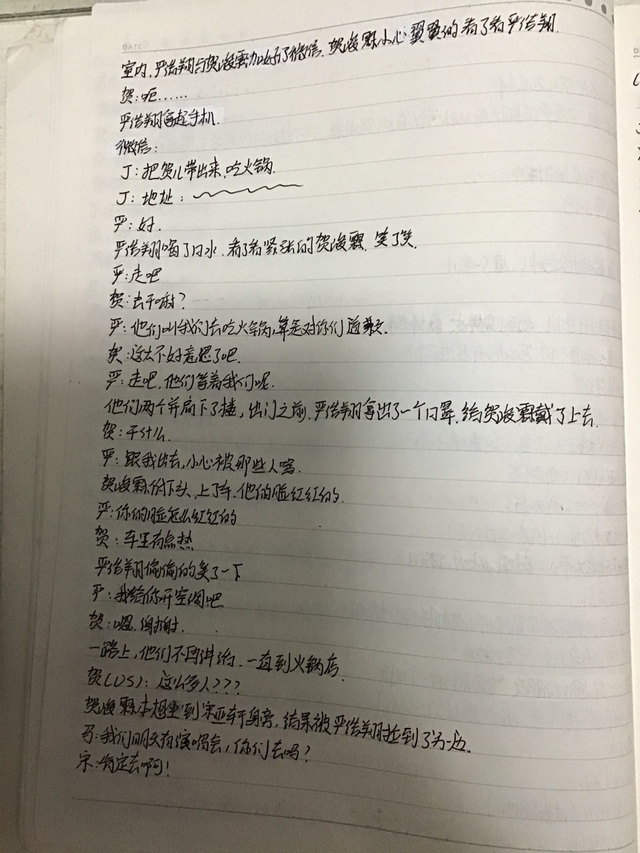 室内，严浩翔与贺峻霖加好了微信，贺峻霖小心翼翼的看了看严浩翔
贺：呃……
严浩翔拿起手机
微信：
丁：把贺儿带出来，吃火锅
丁：地址：
严：好
严浩翔喝了口水，看了看紧张的贺峻霖，笑了笑
严：走吧
贺：去干嘛？
严：他们叫我们去吃火锅，算是对你们道歉
贺：这太不好意思了吧
严：走吧，他们等着我们呢
他们两个并肩下了楼，出门之前，严浩翔拿出了一个口罩，给贺峻霖戴了上去
贺：干什么
严：跟我出去，小心被那些人骂
贺峻霖低下头，上了车，他的脸红红的
严：你的脸怎么红红的
贺：车里有点热
严浩翔偷偷的笑了一下
严：我给你开空调吧
贺：嗯，谢谢
一路上，他们不再讲话，一直到火锅店
贺(OS)：这么多人？？？
贺峻霖本想坐到宋亚轩身旁，结果被严浩翔拉到了另一边
马：我们明天有演唱会，你们去吗？
宋：肯定去啊！